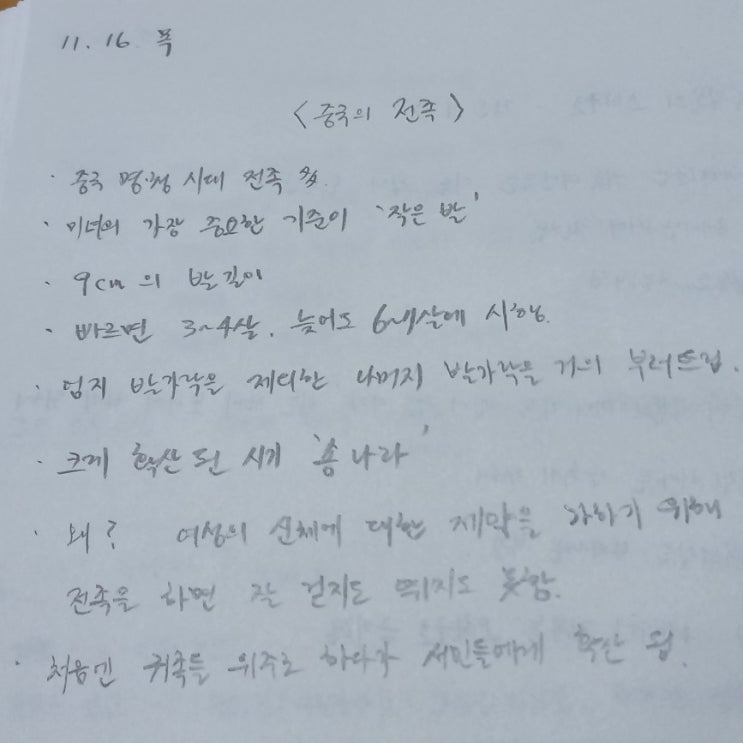 11. 16 목
<중국의 전족>
· 중국 명·청 시대 전족 多.
· 미녀의 가장 중요한 기준이 '작은 발'
· 9cm의 발 길이
· 빠르면 3~4살, 늦어도 6~7살에 시행.
· 엄지 발가락을 제외한 나머지 발가락을 거의 부러뜨림.
· 크게 확산 된 시기 '송나라'
· 왜? 여성의 신체에 대한 제약을 가하기 위해
전족을 하면 잘 걷지도 뛰지도 못함.
· 처음엔 귀족들 위주로 하다가 서민들에게 확산 됨.